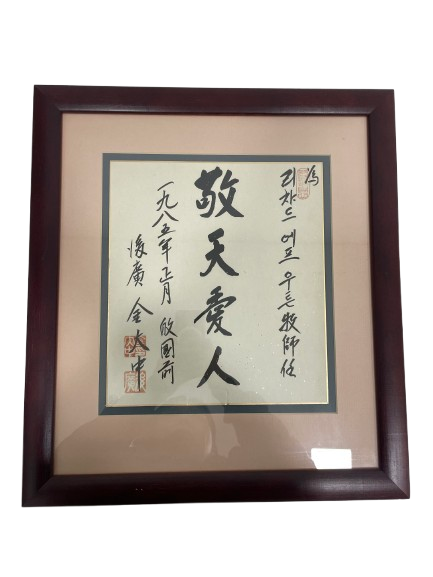 為
리챠드 에프 우튼 牧師任
敬天愛人
一九八五年 正月 歸國前
後廣 金大中